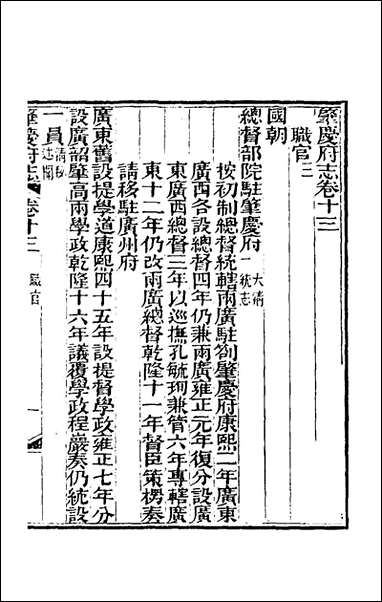 肇慶府志卷十三
職官三
國朝
總督部院駐肇慶府大清一統志
按初制總督統轄兩廣駐劄肇慶府康熙二年廣東
廣西各設總督四年仍兼兩廣雍正元年復分設廣
東廣西總督三年以巡撫孔毓珣兼管六年專轄廣
東十二年仍改兩廣總督乾隆十一年督臣策楞奏
請移駐廣州府
廣東舊設提學道康熙四十五年設提督學政雍正七年分
設廣韶肇高兩學政乾隆十六年議覆學政程嚴奏仍統設
一員
肇慶府志 卷十三 職官 一